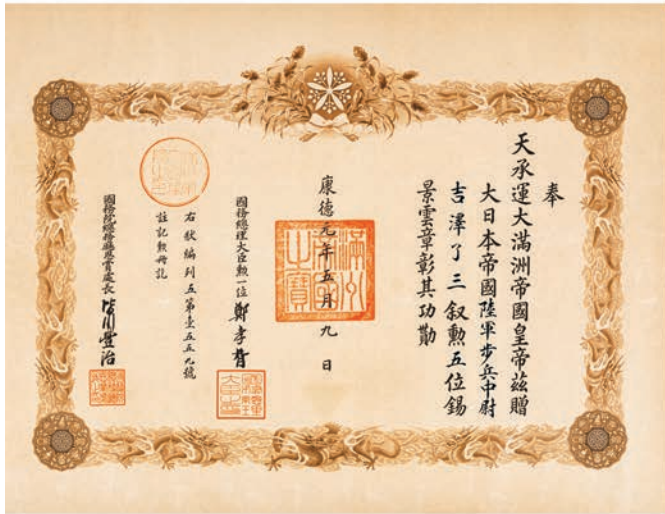 奉
天承運大滿洲帝國皇帝茲贈
大日本帝國陸軍步兵中尉
吉澤了三叙勲五位錫
景雲章彰其功勛
康德元年五月九日
國務總理大臣勲一位 鄭孝胥
右敘編列五第壹五五九號
註記勲冊訖
國務院總務廳恩賞處長 皆川豐治